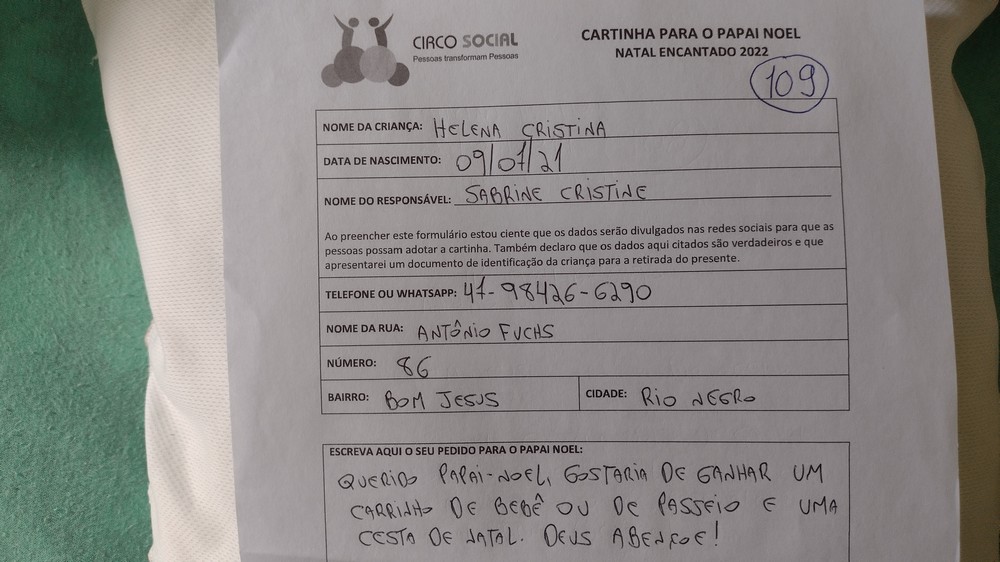 CIRCO SOCIAL
Pessoas transformam Pessoas
CARTINHA PARA O PAPAI NOEL
NATAL ENCANTADO 2022
109
NOME DA CRIANÇA: HELENA CRISTINA
DATA DE NASCIMENTO: 09/07/21
NOME DO RESPONSÁVEL: SABRINE CRISTINE
Ao preencher este formulário estou ciente que os dados serão divulgados nas redes sociais para que as
pessoas possam adotar a cartinha. Também declaro que os dados aqui citados são verdadeiros e que
apresentarei um documento de identificação da criança para a retirada do presente.
TELEFONE OU WHATSAPP: 47-98426-6290
NOME DA RUA: ANTÔNIO FUCHS
NÚMERO: 86
BAIRRO: BOM JESUS CIDADE: RIO NEGRO
ESCREVA AQUI O SEU PEDIDO PARA O PAPAI NOEL:
QUERIDO PAPAI-NOEL, GOSTARIA DE GANHAR UM
CARRINHO DE BEBÊ OU DE PASSEIO E UMA
CESTA DE NATAL. DEUS ABENÇOE!